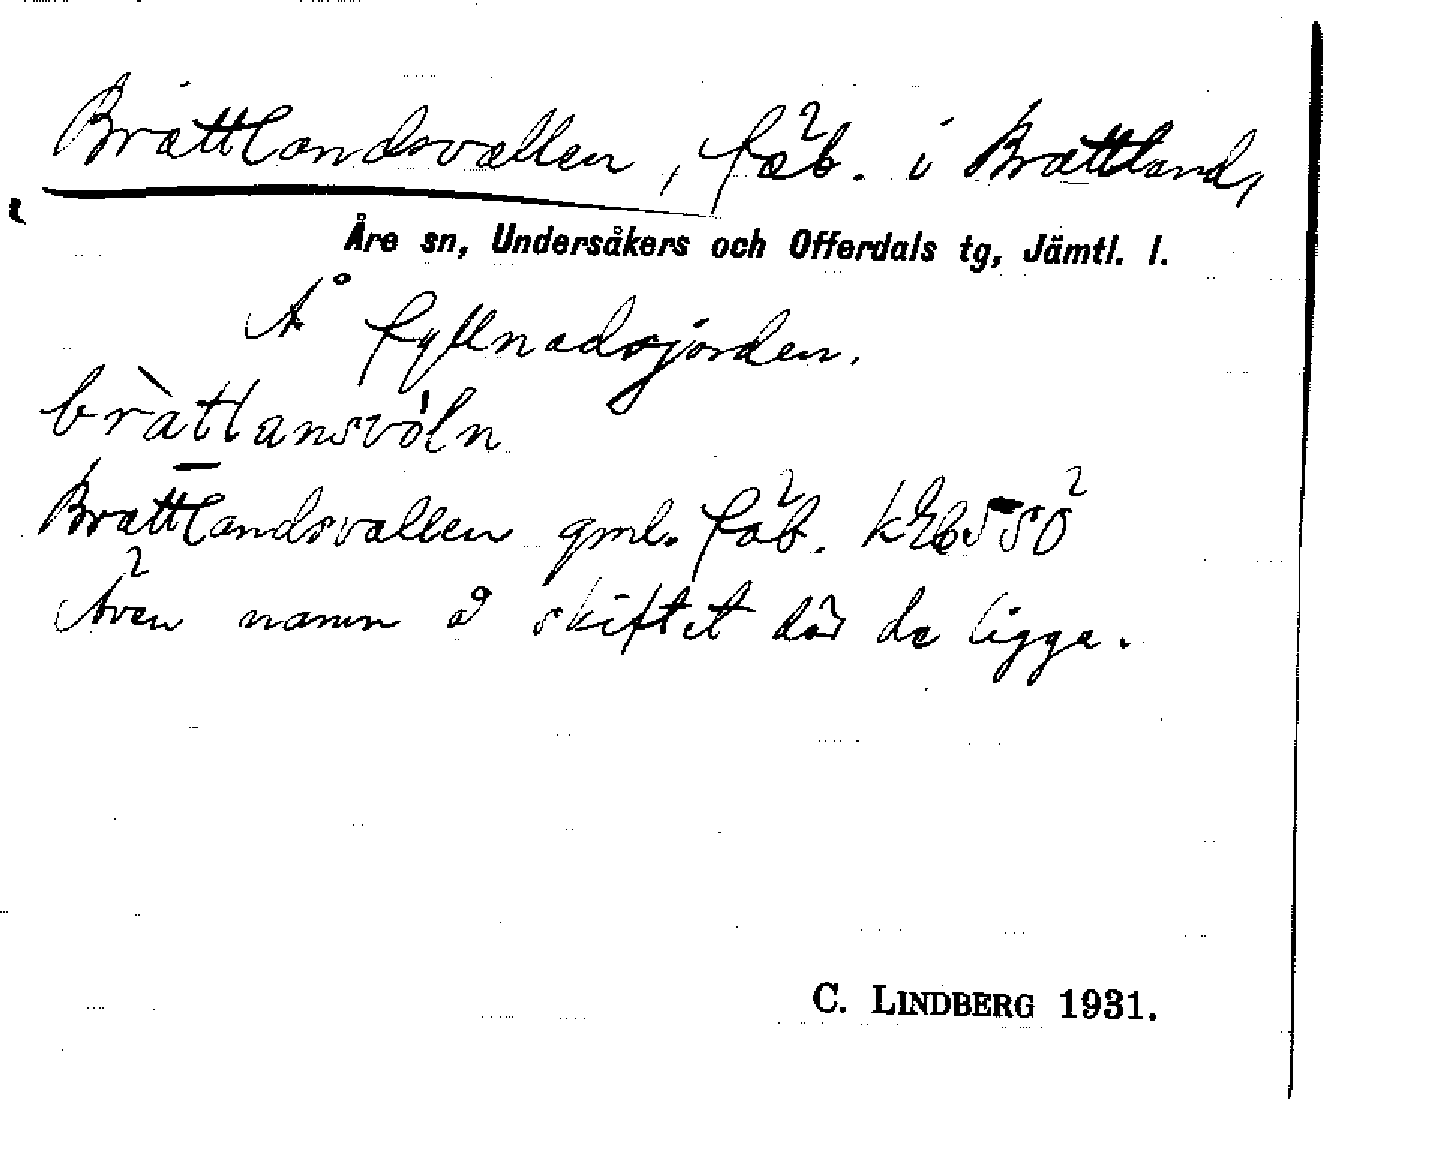 Brattlandsvallen, fäb. i Brattland,
Åre sn, Undersåkers och Offerdals tg, Jämtl. l.
Å fyllnadsjorden.
bràttlansvóln
Brattlandsvallen gml. fäb.
Även namn å skiftet där de ligga.
C. LINDBERG 1931.